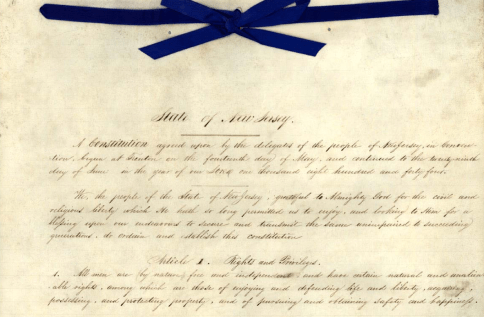 State of New Jersey.
A Constitution agreed upon by the delegates of the people of New Jersey, in Conven-
tion, begun at Trenton on the fourteenth day of May, and continued to the twenty-ninth
day of June in the year of our Lord one thousand eight hundred and forty-four.
We, the people of the State of New Jersey, grateful to Almighty God for the civil and
religious liberty which He hath so long permitted us to enjoy, and looking to Him for a
blessing upon our endeavors to secure and transmit the same unimpaired to succeeding
generations, do ordain and establish this constitution
Article I. Rights and Privileges.
1. All men are by nature free and independent, and have certain natural and unalien-
able rights, among which are those of enjoying and defending life and liberty, acquiring,
possessing, and protecting property, and of pursuing and obtaining safety and happiness.